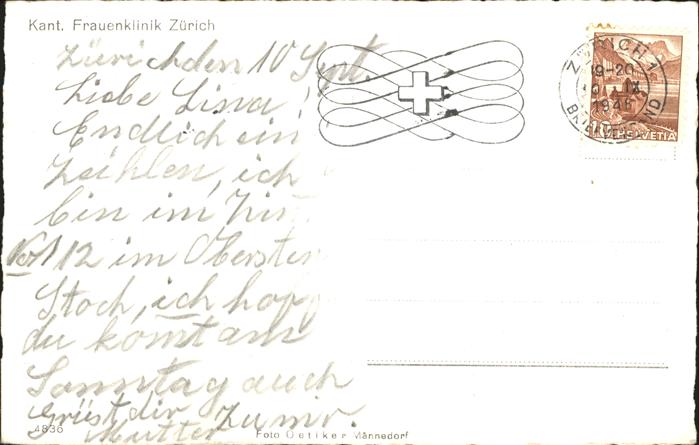 Kant. Frauenklinik Zürich
Zürich den 10 Sept.
Liebe Lina!
Endlich ein
Zeihlen, ich
bin im Zim
No 112 im Obersten
Stock, ich hoffe
du komst am
Sonntag auch
Grüst dir zu mir.
Mutter
4836
Foto Oetiker Männedorf
ZÜRICH 1
19-20
IX
1946
BRIEFVERSAND
10 HELVETIA